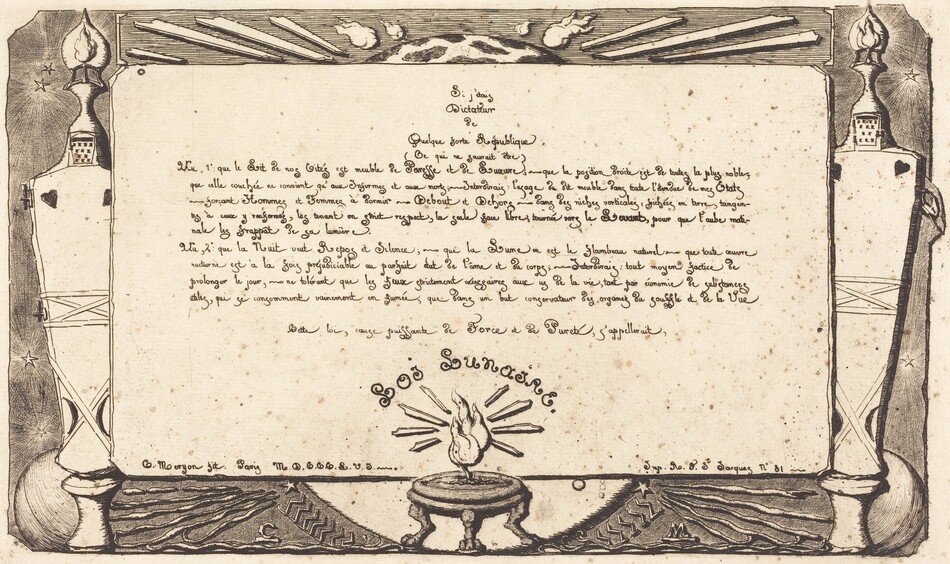 Si j'étais
Dictateur
de
Quelque forte République
(Ce qui ne saurait être)
Vu, 1° que le Lit de nos Cités est meuble de Paresse et de Luxure; que la position Droite est de toutes la plus noble,
que celle couchée ne convient qu'aux Infirmes et aux morts, Interdirais l'usage du dit meuble dans toute l'étendue de mes États
forçant Hommes et Femmes à Dormir Debout et Dehors dans des niches verticales, fichées en terre, sangen-
és à ceux y renfermés, les tenant en strict respect, la seule face libre, tournée vers le Levant, pour que l'aube mati-
nale les frappât de sa lumière.
Vu, 2° que la Nuit veut Repos et Silence; que la Lune en est le flambeau naturel que toute œuvre
nocturne est à la fois préjudiciable au parfait état de l'âme et du corps; Interdirais tout moyen factice de
prolonger le jour, ne tolérant que les feux strictement nécessaires aux us de la vie, tant par économie de substances
utiles, qui se consomment vainement en fumée, que dans un but conservateur des organes du souffle et de la Vue
Cette loi, cause puissante de Force et de Pureté, s'appellerait,
Loi Lunaire.
C. Meryon fct. Paris M.D.CCC.L.V.I.
Imp. R. F. St Jacques N° 81
C.
M.